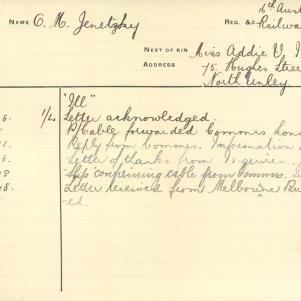 16th Aust
NAME C. M. Jenetzky REG. &C. Railway
NEXT OF KIN Miss Addie V. I
ADDRESS 75 Hughes Stree
North Unley.
"Ill"
8. 1/4 Letter acknowledged.
B/Cable forwarded Commrs Lond
Reply from Commrs. Information
8. Letter of thanks from
8 slip confirming cable from Commrs.
18. Letter received from Melbourne
ed.